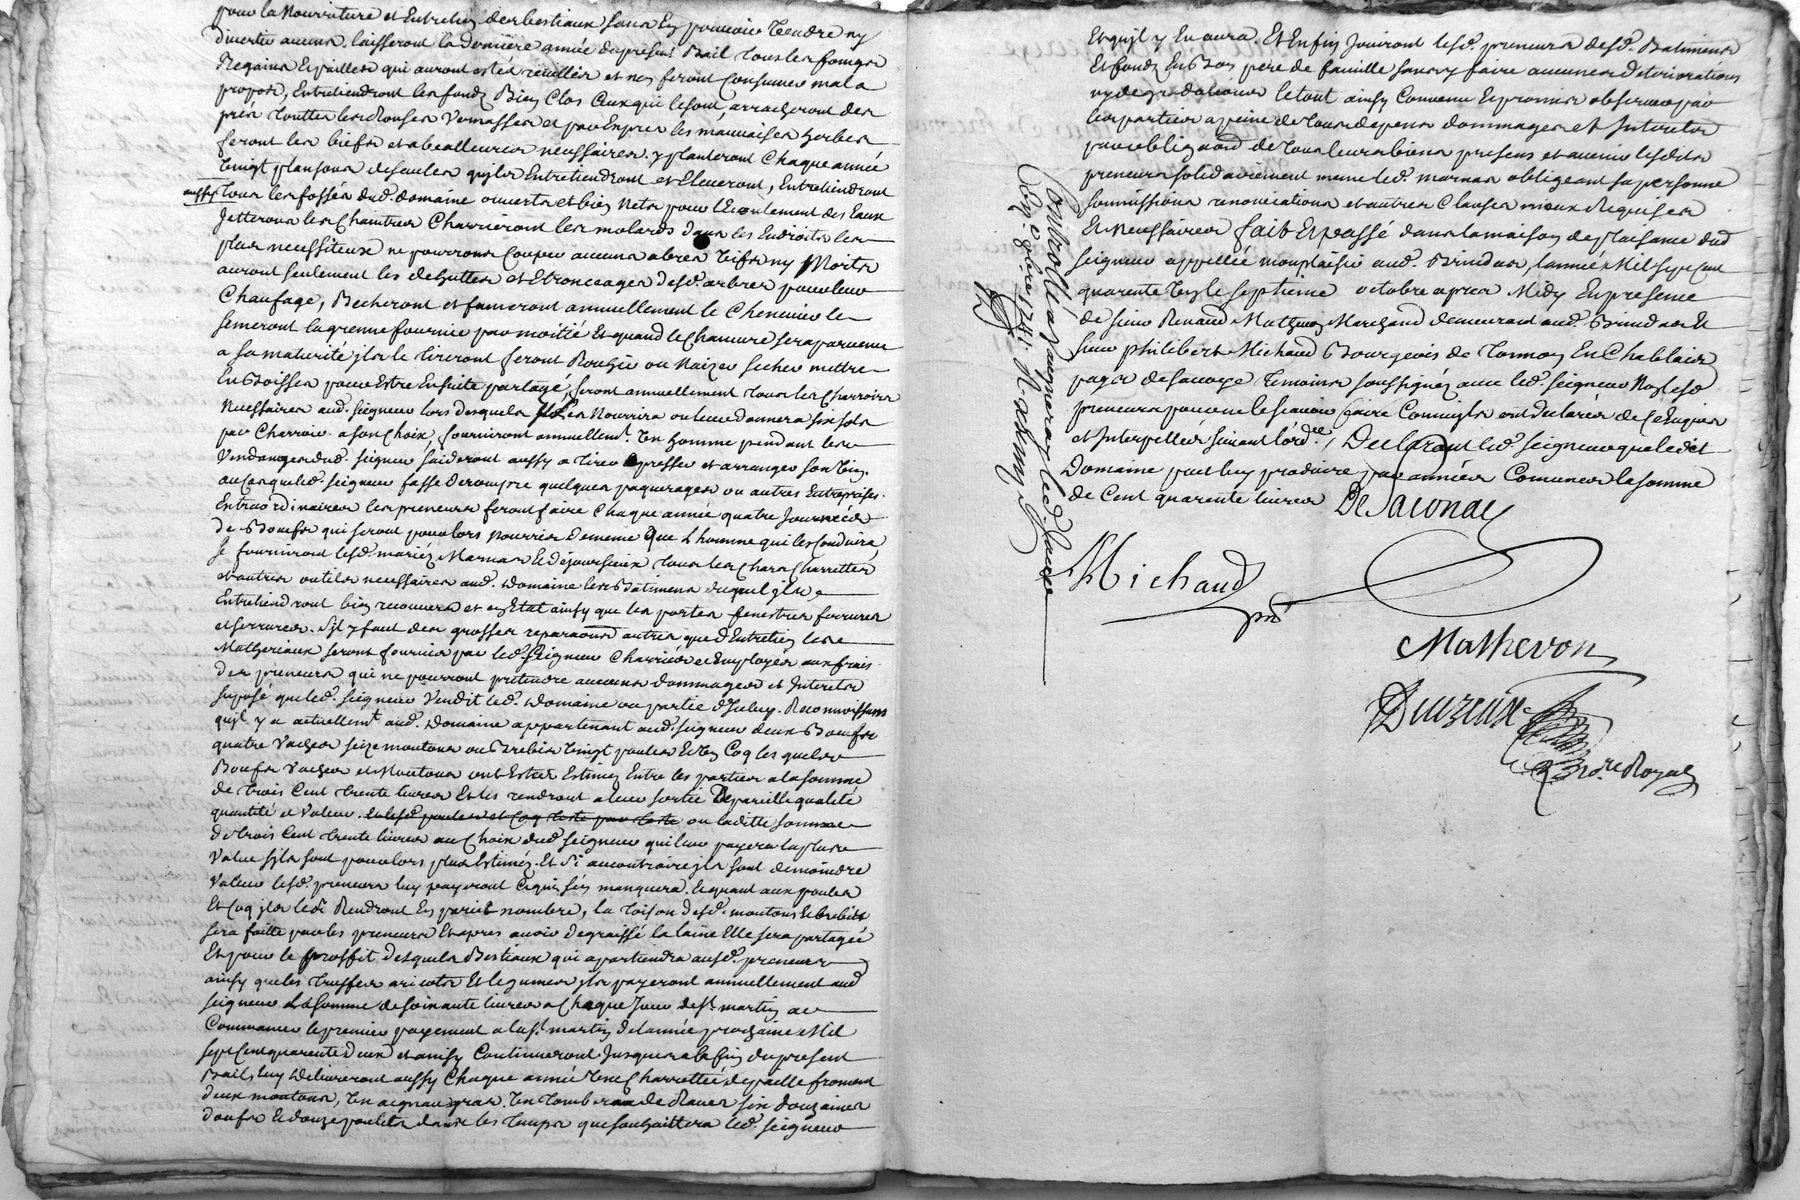 pour la Nourriture et Entretien des bestiaux sans En pouvoir Vendre ny
divertir aucuns. laisseront la derniere année du present Bail Tous les foings
Regains Et pailles qui auront esté receuillis et n'en feront Consumer mal a
propos, Entretiendront les fondz Bien Clos Ceux qui le sont arracheront des
prés Touttes les Ronses Vernasses et les mauvaises herbes
feront les biefs et abealleures necessaires. y planteront Chaque année
Vingt plansons de saules qu'jls Entretiendront et Eleveront, Entretiendront
aussy Tous les fossés dud. domaine ouverts et bien Nets pour l'Ecoulement des Eaux
Jetteront les Chaintres Charrieront les molards dans les Endroits les
plus necessiteux ne pourront Couper aucuns abres Vifs ny Morts
auront seulement les debuttes et Etronceages desd. arbres pour leur
Chaufage, Becheront et fumeront annuellement le Chenevier le
semeront la grenne fournie par moitié Et quand le Chanvre sera parvenu
a sa maturité jls le Tireront feront Rouhir ou Naizer secher mettre
En Boisses pour Estre Ensuite partagé, feront annuellement Tous les Charrois
Necessaires aud. seigneur lors desquels jl les Nourrira ou leur donnera six sols
par Charroi a son Choix, fourniront annuellemt. Un homme pendant les
Vendanges dud. seigneur s'aideront aussy a Tirer presser et arranger son Vin.
au Cas que led. seigneur fasse derompre quelques paquerages ou autres Entreprises
Extraordinaires les preneurs feront faire Chaque année quatre Journées
de Boeufs qui seront pour lors nourris de meme que L'homme qui les Conduira
se fourniront lesd. mariez Marnas et dejoursieux Tous les Chars Charrettes
et autres outils necessaires aud. Domaine les Batimens duquel jls
Entretiendront bien recouverts et en Etat ainsy que les portes fenestres ferrures
et serrures. S'jl y faut des grosses reparaons autres que d'Entretien les
Matheriaux seront fournis par led. Seigneur Charriés et Employés aux frais
des preneurs qui ne pourront pretendre aucuns dommages et Interets
supposé que led. seigneur Vendit led. Domaine ou partie d'Jceluy. Reconnoissans
qu'jl y a actuellemt. aud. Domaine appartenant aud. seigneur deux Boeufs
quatre Vaches seize moutons ou Brebis Vingt poules Et Un Coq les quels
Boeufs Vaches et Moutons ont Estés Estimez Entre les parties a la somme
de Trois Cent Trente livres Et les rendront a leur sortie De pareille qualité
quantité et Valeur. et lesd. poules et Coq teste par teste ou laditte somme
de Trois Cent Trente livres au Choix dud. seigneur qui leur payera la plus
Value s'jls sont pour lors plus Estimés. Et Si au contraire jls sont de moindre
Valeur lesd. preneurs luy payeront Ce qui s'en manquera. Et quant aux poules
Et Coq jls les Rendront En pareil nombre, la Toison desd. moutons Et brebis
sera faitte par les preneurs Et apres avoir degraissé la laine Elle sera partagée
Et pour le proffit desquels Bestiaux qui apartiendra ausd. preneurs
ainsy que les Truffes aricots Et legumes jls payeront annuellement aud
seigneur La somme de soixante livres a Chaque Jour de St. martin a
Commancer le premier payement a la St. martin de l'année prochaine Mil
sept Cent quarente deux et ainsy Continueront Jusques a la fin du present
Bail, luy delivreront aussy Chaque année Une Charrettée de paille froment
deux moutons, Un aigneau gras. Un Tombereau de Raves six douzaines
d'oeufs Et douze poulets dans les Temps que souhaittera led. seigneur
Et qu'jl y En aura. Et Enfin Jouiront lesd. preneurs desd. Batimens
Et fondz En Bon pere de famille sans y faire aucunes deteriorations
ny degradations le tout ainsy Convenu Et promis observer par
les parties a peine de Tous depens dommages et Interets
par obligaon de Tous leurs biens presens et avenir lesdits
preneurs solidairement meme led. marnas obligeant sa personne
soumissions renonciations et autres Clauses mieux Requises
Et Necessaires fait Et passé dans la maison de plaisance dud
seigneur appellée monplaisir aud. Brindas, l'année Mil sept Cent
quarente Un le septieme octobre apres Midy En presence
de sieur Renaud Mathevon Marchand demeurant aud. Brindas Et
sieur philibert Michaud Bourgeois de Tonnon En Chablais
pays de savoye Temoins soussignéz avec led. seigneur Non lesd
preneurs pour ne le sçavoir faire Comme jls ont declarés de Ce Enquis
et Interpellés suivant l'ordce, Declarant led. seigneur que ledit
Domaine peut luy produire par années Comunes la somme
de Cent quarente livres DeSaconay
Michaud
pnt
Mathevon
Deuzeux
nore. Royal
Controllé a
8bre 1741. R.